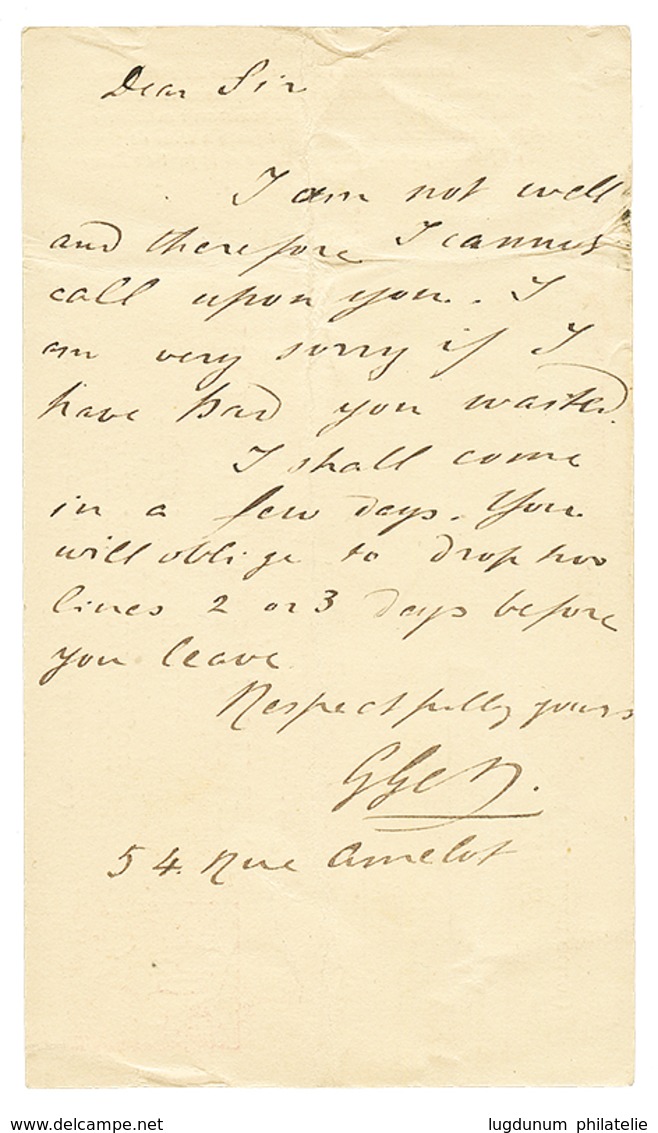 Dear Sir
I am not well
and therefore I cannot
call upon you. I
am very sorry if I
have had you waited.
I shall come
in a few days. You
will oblige to drop two
lines 2 or 3 days before
you leave
Respectfully yours
54. Rue Amelot
www.delcampe.net
lugdunum philatelie